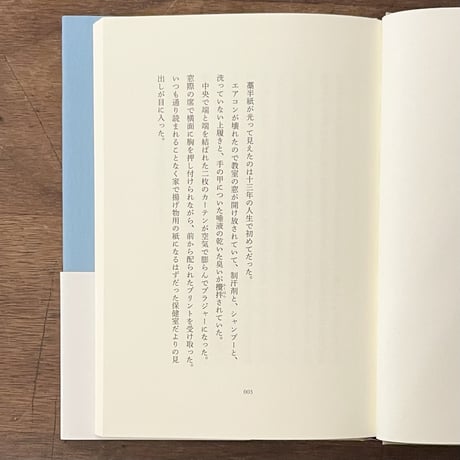 藁半紙が光って見えたのは十三年の人生で初めてだった。
エアコンが壊れたので教室の窓が開け放されていて、制汗剤と、シャンプーと、
洗っていない上履きと、手の甲についた唾液の乾いた臭いが攪拌されていた。
中央で端と端を結ばれた二枚のカーテンが空気で膨らんでブラジャーになった。
窓際の席で横面に胸を押し付けられながら、前から配られたプリントを受け取った。
いつも通り読まれることなく家で揚げ物用の紙になるはずだった保健室だよりの見
出しが目に入った。
003